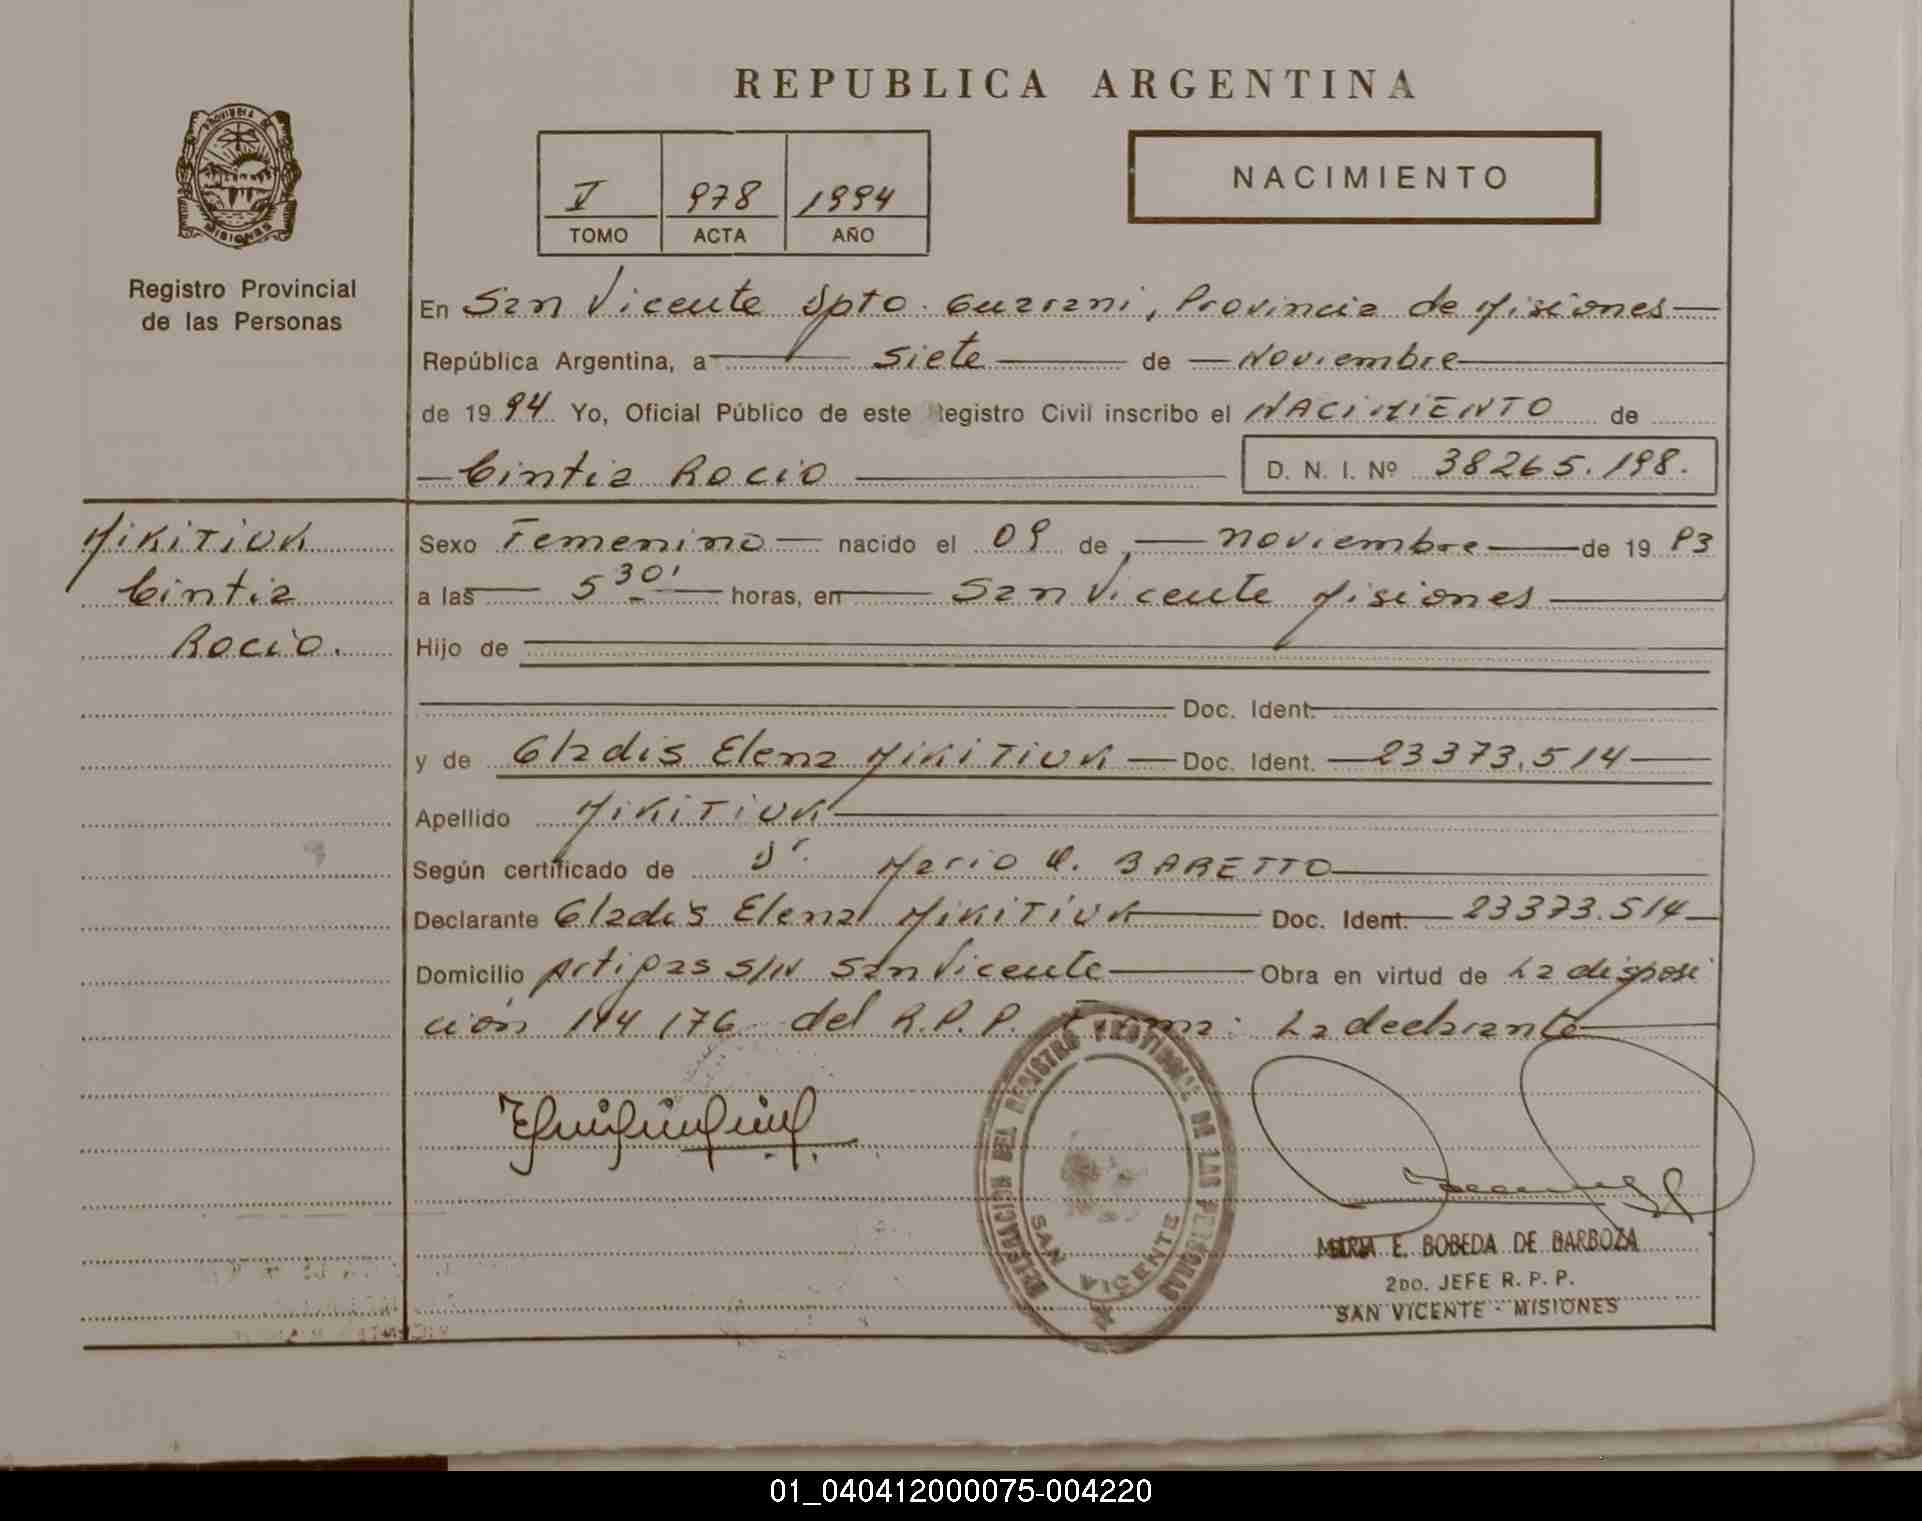 REPUBLICA ARGENTINA
PROVINCIA DE
MISIONES
Registro Provincial
de las Personas
V 978 1994
TOMO ACTA AÑO
NACIMIENTO
En San Vicente Dpto. Guarani, Provincia de Misiones
República Argentina, a siete de Noviembre
de 1994 Yo, Oficial Público de este Registro Civil inscribo el NACIMIENTO de
Cintia Rocio D. N. I. Nº 38265.198.
MIKITIUK
Cintia
Rocio.
Sexo Femenino nacido el 09 de noviembre de 1993
a las 5 30' horas, en San Vicente Misiones
Hijo de
Doc. Ident.
y de Gladis Elena MIKITIUK Doc. Ident. 23373.514
Apellido MIKITIUK
Según certificado de Dr. Mario A. BARETTO
Declarante Gladis Elena MIKITIUK Doc. Ident. 23373.514
Domicilio Artigas S/N San Vicente Obra en virtud de La disposi
ción 144/76 del R.P.P. Firma: La declarante
DELEGACION DEL REGISTRO PROVINCIAL DE LAS PERSONAS
SAN VICENTE
MARIA E. BOBEDA DE BARBOZA
2DO. JEFE R. P. P.
SAN VICENTE - MISIONES
01_040412000075-004220